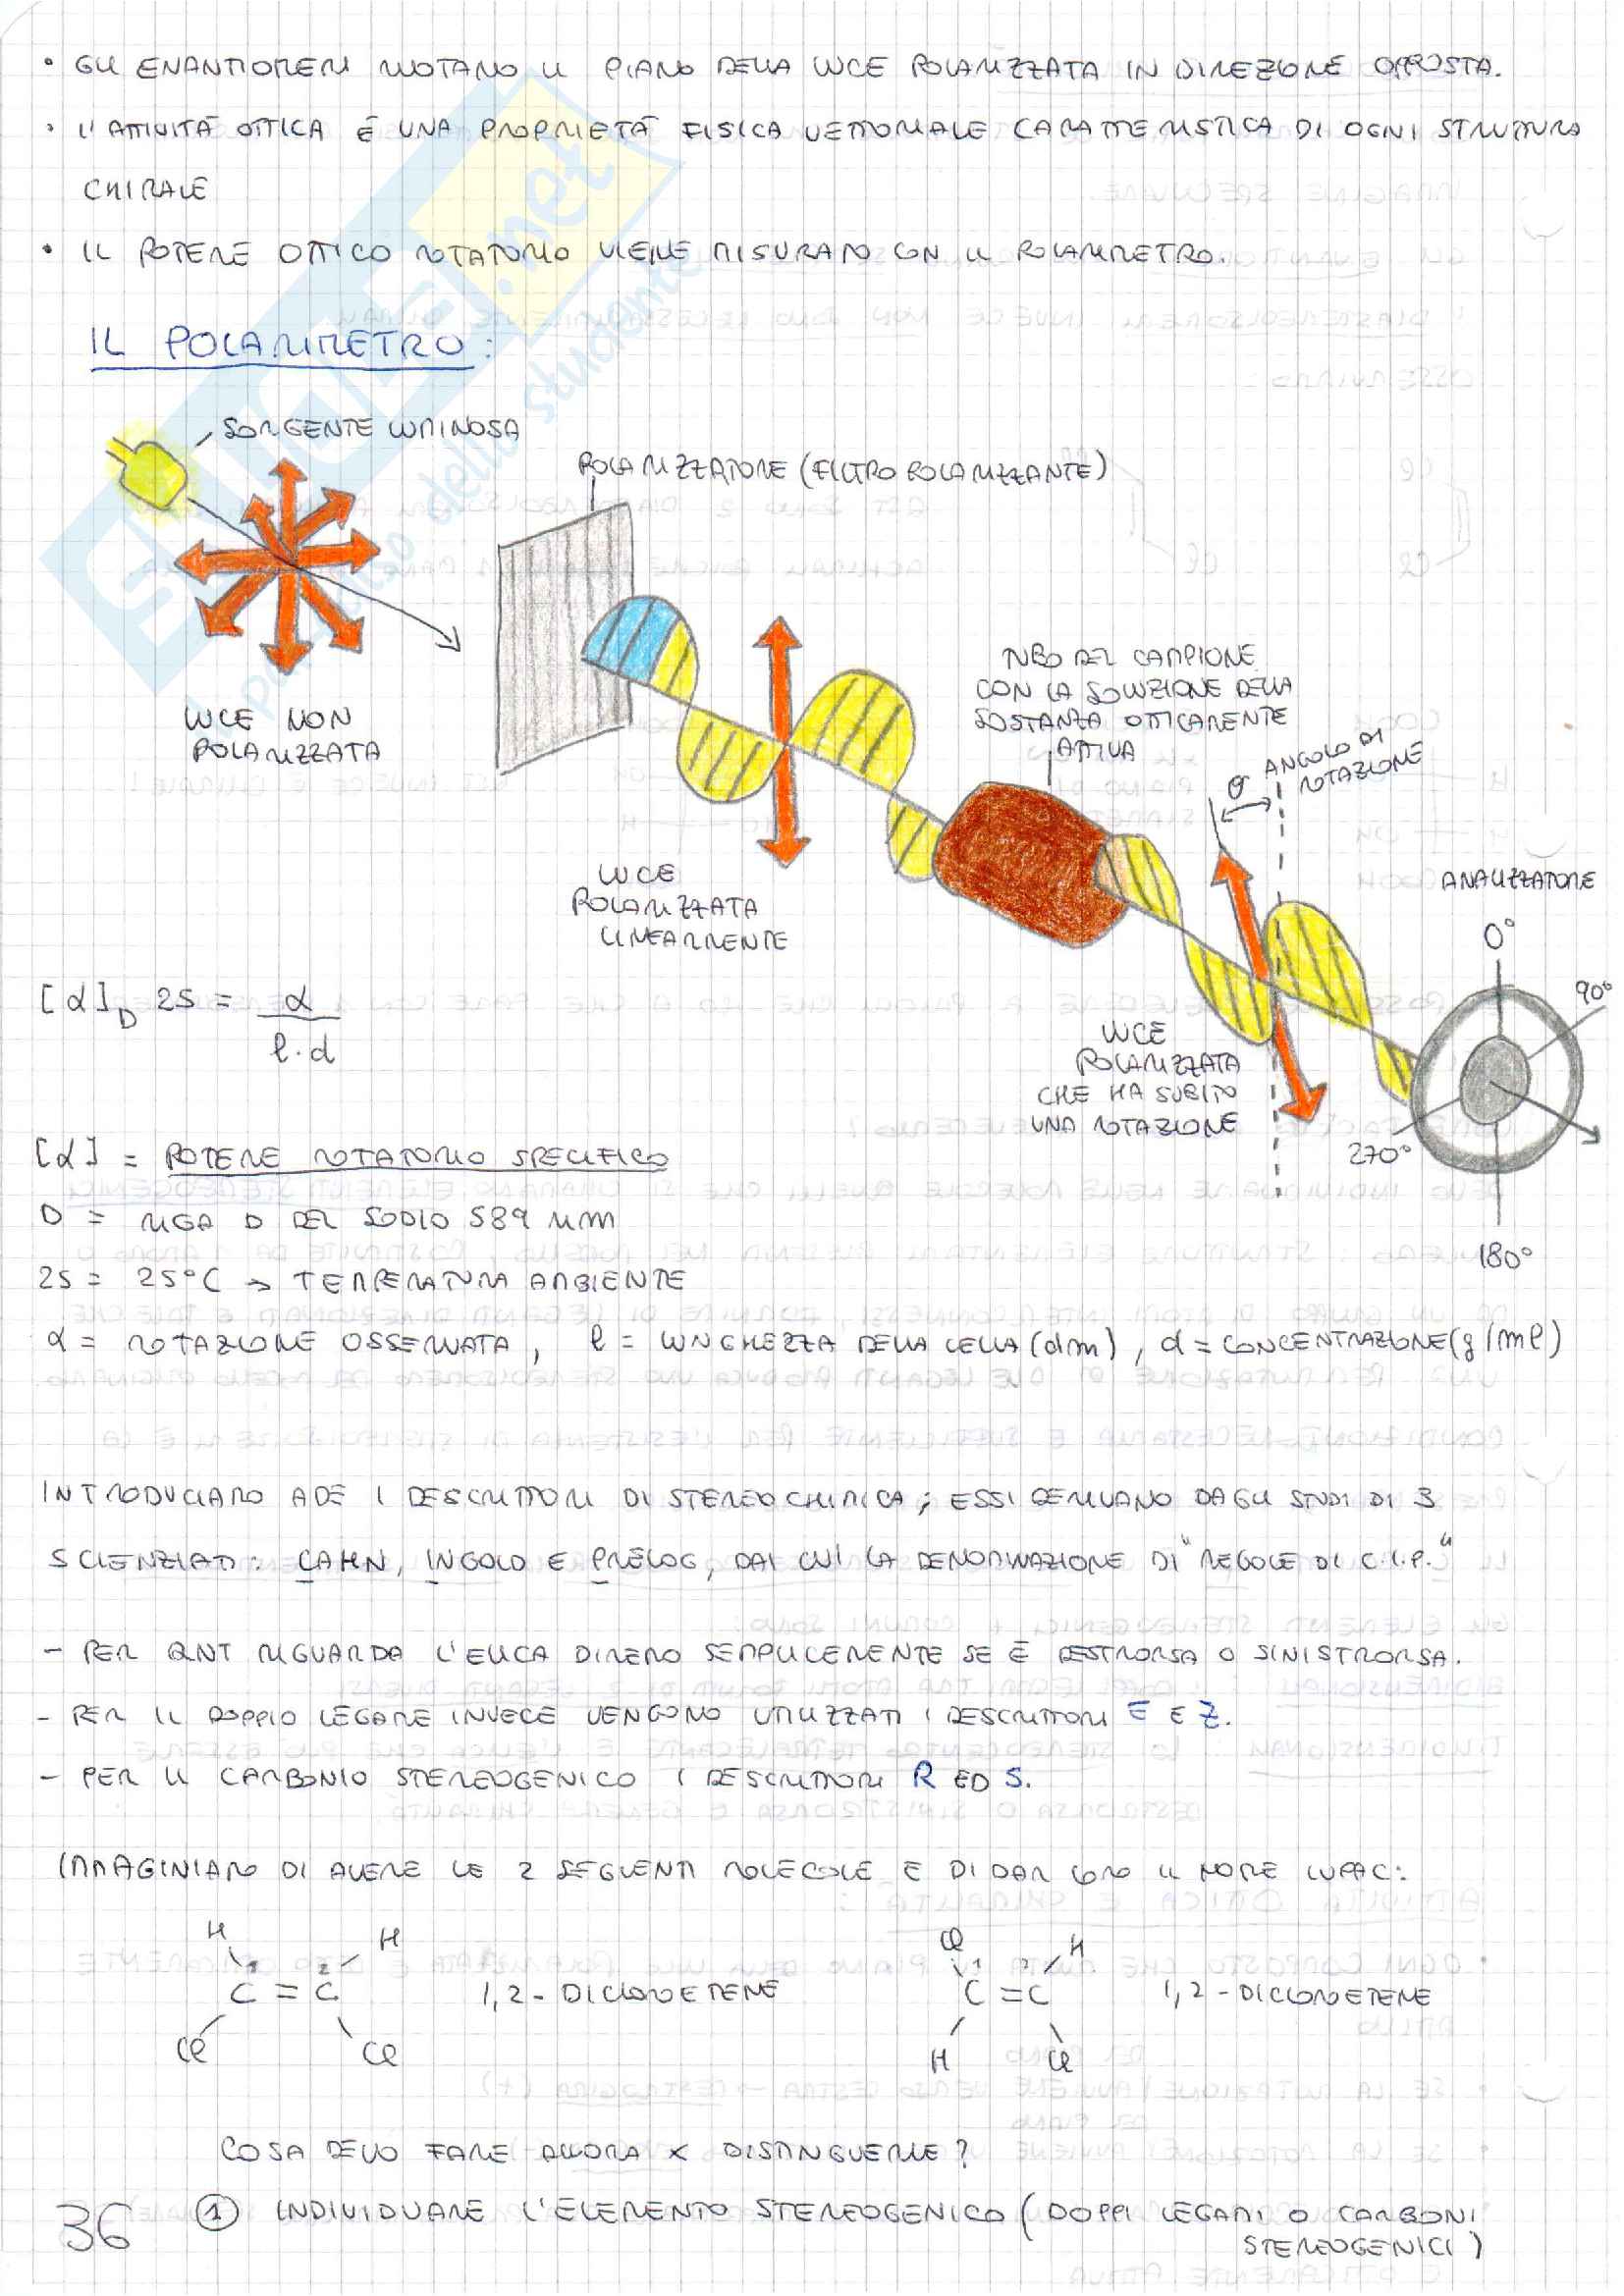 • GLI ENANTIOMERI RUOTANO IL PIANO DELLA LUCE POLARIZZATA IN DIREZIONE OPPOSTA.
• L'ATTIVITÀ OTTICA È UNA PROPRIETÀ FISICA VETTORIALE CARATTERISTICA DI OGNI STRUTTURA
CHIRALE
• IL POTERE OTTICO ROTATORIO VIENE MISURATO CON IL POLARIMETRO.
IL POLARIMETRO:
SORGENTE LUMINOSA
POLARIZZATORE (FILTRO POLARIZZANTE)
LUCE NON
POLARIZZATA
TUBO DEL CAMPIONE
CON LA SOLUZIONE DELLA
SOSTANZA OTTICAMENTE
ATTIVA
θ ANGOLO DI
ROTAZIONE
LUCE
POLARIZZATA
LINEARMENTE
ANALIZZATORE
0°
90°
270°
180°
LUCE
POLARIZZATA
CHE HA SUBITO
UNA ROTAZIONE
[α]D 25 = α / l·d
[α] = POTERE ROTATORIO SPECIFICO
D = RIGA D DEL SODIO 589 nm
25 = 25°C → TEMPERATURA AMBIENTE
α = ROTAZIONE OSSERVATA, l = LUNGHEZZA DELLA CELLA (dm), d = CONCENTRAZIONE (g/ml)
INTRODUCIAMO ADE I DESCRITTORI DI STEREOCHIMICA; ESSI DERIVANO DAGLI STUDI DI 3
SCIENZIATI: CAHN, INGOLD E PRELOG, DAI CUI LA DENOMINAZIONE DI "REGOLE DI C.I.P."
- PER QNT RIGUARDA L'ELICA DIREMO SEMPLICEMENTE SE È DESTRORSA O SINISTRORSA.
- PER IL DOPPIO LEGAME INVECE VENGONO UTILIZZATI I DESCRITTORI E E Z.
- PER IL CARBONIO STEREOGENICO I DESCRITTORI R ED S.
IMMAGINIAMO DI AVERE LE 2 SEGUENTI MOLECOLE E DI DAR LORO IL NOME IUPAC:
H H
1 2
C = C 1,2 - DICLOROETENE
Cl Cl
Cl H
1 2
C = C 1,2 - DICLOROETENE
H Cl
COSA DEVO FARE ALLORA X DISTINGUERLE?
① INDIVIDUARE L'ELEMENTO STEREOGENICO (DOPPI LEGAMI O CARBONI
STEREOGENICI)
36
SKUOLA.net